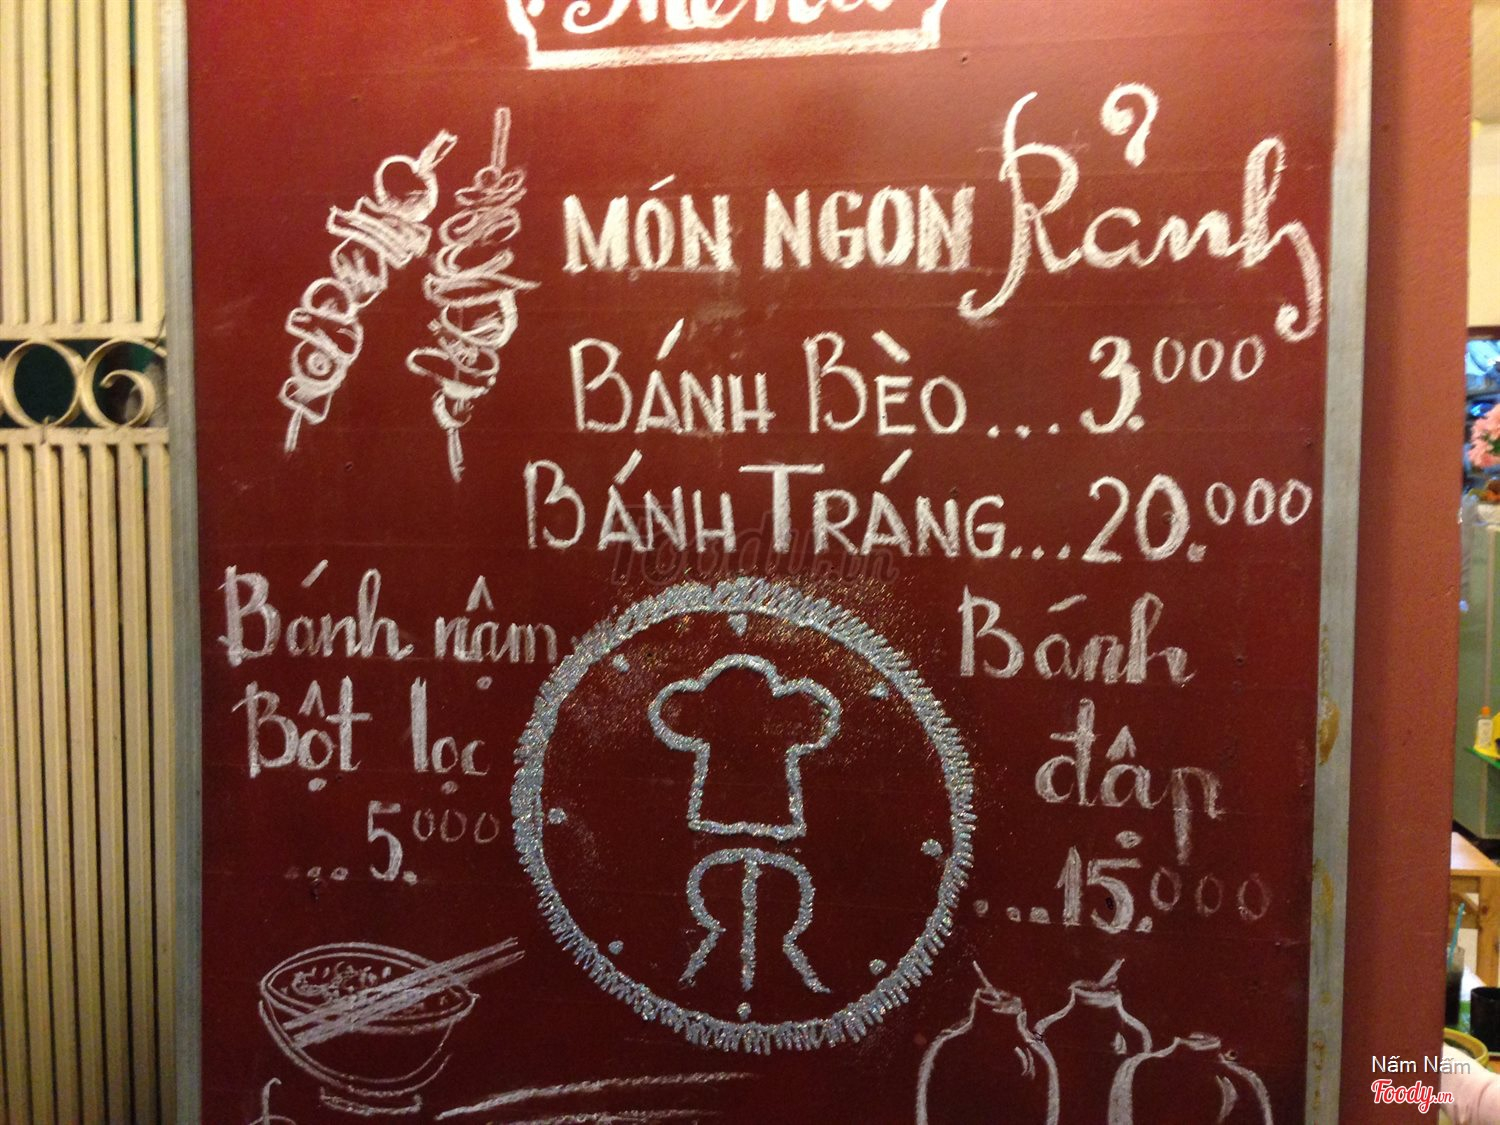 Menu
MÓN NGON Rảnh
BÁNH BÈO ... 3.000
BÁNH TRÁNG ... 20.000
Bánh nậm
Bột lọc
... 5.000
Bánh
đập
... 15.000
Foody.vn
Nấm Nấm
Foody.vn